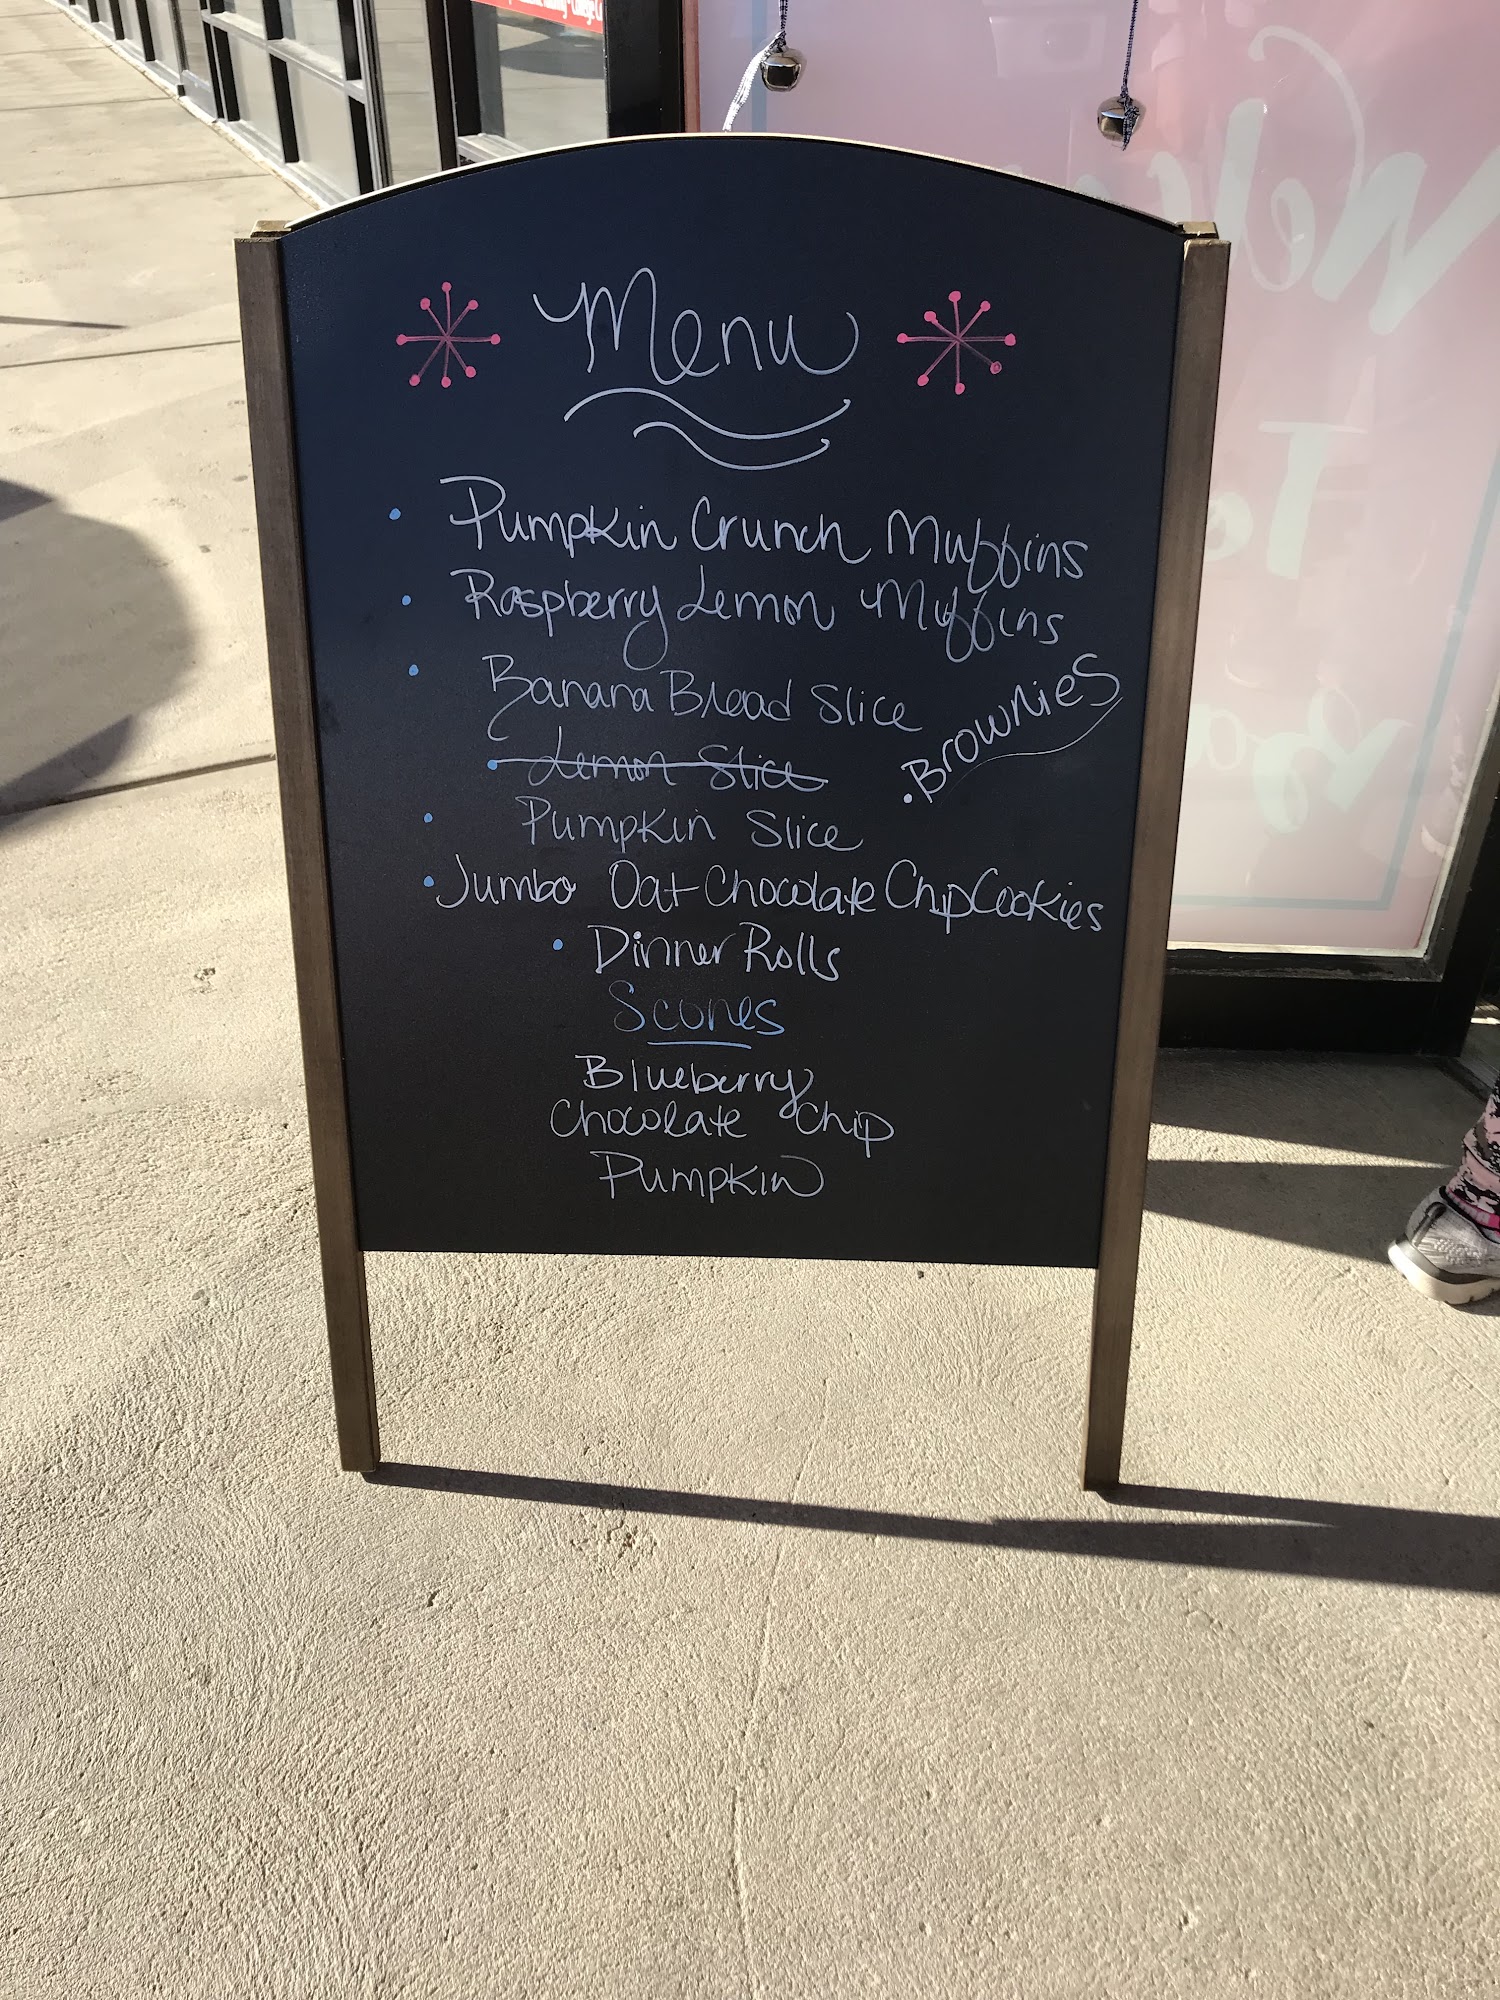 Menu
• Pumpkin Crunch Muffins
• Raspberry Lemon Muffins
• Banana Bread Slice
• Lemon Slice
• Brownies
• Pumpkin Slice
• Jumbo Oat Chocolate Chip Cookies
• Dinner Rolls
Scones
Blueberry
Chocolate Chip
Pumpkin